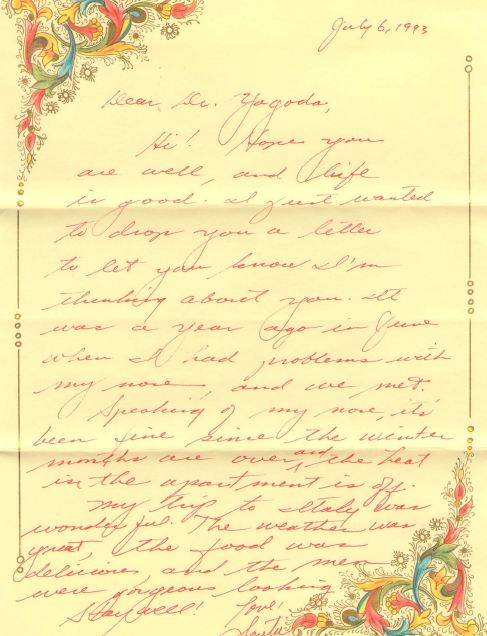 July 6, 1993
Dear Dr. Yagoda,
Hi! Hope you
are well, and life
is good. I just wanted
to drop you a letter
to let you know I'm
thinking about you. It
was a year ago in June
when I had problems with
my nose, and we met.
Speaking of my nose, it's
been fine since the winter
months are over and the heat
in the apartment is off.
My trip to Italy was
wonderful. The weather was
great, the food was
delicious and the men
were gorgeous looking
Stay well! Love!